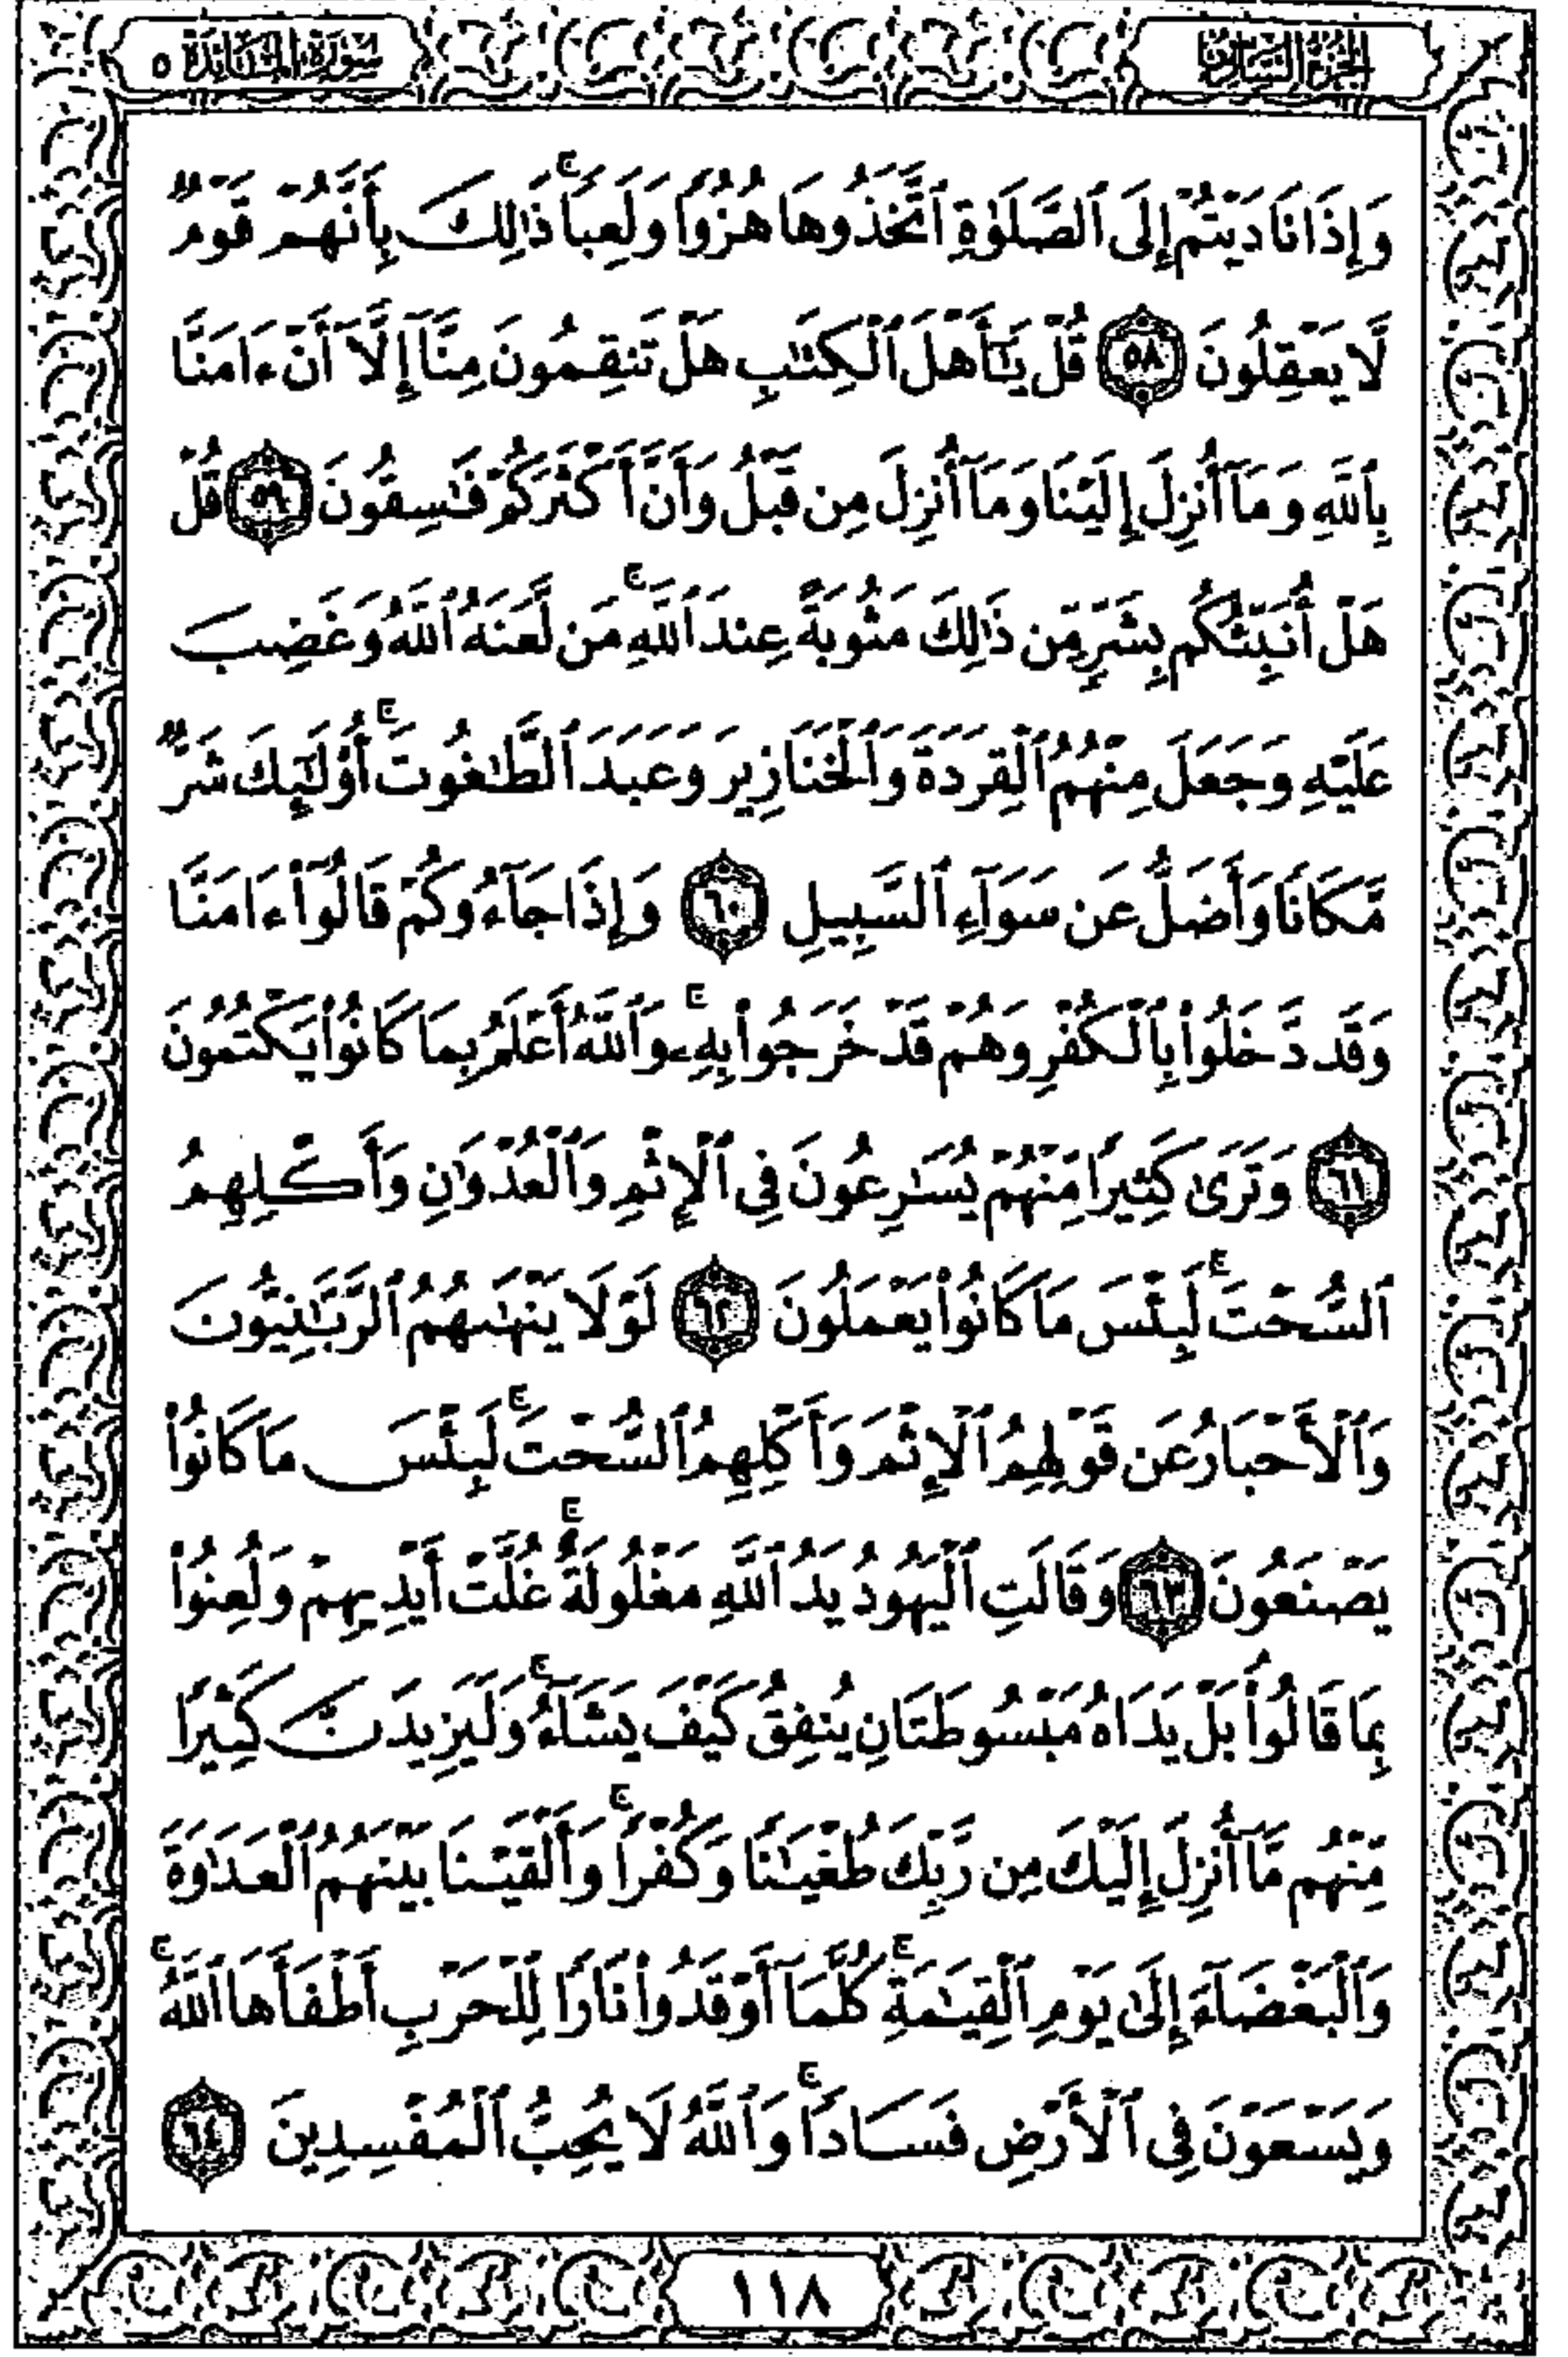 الجزء السادس
سورة المائدة ٥
وَإِذَا نَادَيْتُمْ إِلَى ٱلصَّلَوٰةِ ٱتَّخَذُوهَا هُزُوًا وَلَعِبًا ۚ ذَٰلِكَ بِأَنَّهُمْ قَوْمٌ
لَّا يَعْقِلُونَ ٥٨ قُلْ يَـٰٓأَهْلَ ٱلْكِتَـٰبِ هَلْ تَنقِمُونَ مِنَّآ إِلَّآ أَنْ ءَامَنَّا
بِٱللَّهِ وَمَآ أُنزِلَ إِلَيْنَا وَمَآ أُنزِلَ مِن قَبْلُ وَأَنَّ أَكْثَرَكُمْ فَـٰسِقُونَ ٥٩ قُلْ
هَلْ أُنَبِّئُكُم بِشَرٍّ مِّن ذَٰلِكَ مَثُوبَةً عِندَ ٱللَّهِ ۚ مَن لَّعَنَهُ ٱللَّهُ وَغَضِبَ
عَلَيْهِ وَجَعَلَ مِنْهُمُ ٱلْقِرَدَةَ وَٱلْخَنَازِيرَ وَعَبَدَ ٱلطَّـٰغُوتَ ۚ أُو۟لَـٰٓئِكَ شَرٌّ
مَّكَانًا وَأَضَلُّ عَن سَوَآءِ ٱلسَّبِيلِ ٦٠ وَإِذَا جَآءُوكُمْ قَالُوٓا۟ ءَامَنَّا
وَقَد دَّخَلُوا۟ بِٱلْكُفْرِ وَهُمْ قَدْ خَرَجُوا۟ بِهِۦ ۚ وَٱللَّهُ أَعْلَمُ بِمَا كَانُوا۟ يَكْتُمُونَ
٦١ وَتَرَىٰ كَثِيرًا مِّنْهُمْ يُسَـٰرِعُونَ فِى ٱلْإِثْمِ وَٱلْعُدْوَٰنِ وَأَكْلِهِمُ
ٱلسُّحْتَ ۚ لَبِئْسَ مَا كَانُوا۟ يَعْمَلُونَ ٦٢ لَوْلَا يَنْهَىٰهُمُ ٱلرَّبَّـٰنِيُّونَ
وَٱلْأَحْبَارُ عَن قَوْلِهِمُ ٱلْإِثْمَ وَأَكْلِهِمُ ٱلسُّحْتَ ۚ لَبِئْسَ مَا كَانُوا۟
يَصْنَعُونَ ٦٣ وَقَالَتِ ٱلْيَهُودُ يَدُ ٱللَّهِ مَغْلُولَةٌ ۚ غُلَّتْ أَيْدِيهِمْ وَلُعِنُوا۟
بِمَا قَالُوا۟ بَلْ يَدَاهُ مَبْسُوطَتَانِ يُنفِقُ كَيْفَ يَشَآءُ ۚ وَلَيَزِيدَنَّ كَثِيرًا
مِّنْهُم مَّآ أُنزِلَ إِلَيْكَ مِن رَّبِّكَ طُغْيَـٰنًا وَكُفْرًا ۚ وَأَلْقَيْنَا بَيْنَهُمُ ٱلْعَدَٰوَةَ
وَٱلْبَغْضَآءَ إِلَىٰ يَوْمِ ٱلْقِيَـٰمَةِ ۚ كُلَّمَآ أَوْقَدُوا۟ نَارًا لِّلْحَرْبِ أَطْفَأَهَا ٱللَّهُ ۚ
وَيَسْعَوْنَ فِى ٱلْأَرْضِ فَسَادًا ۚ وَٱللَّهُ لَا يُحِبُّ ٱلْمُفْسِدِينَ ٦٤
١١٨